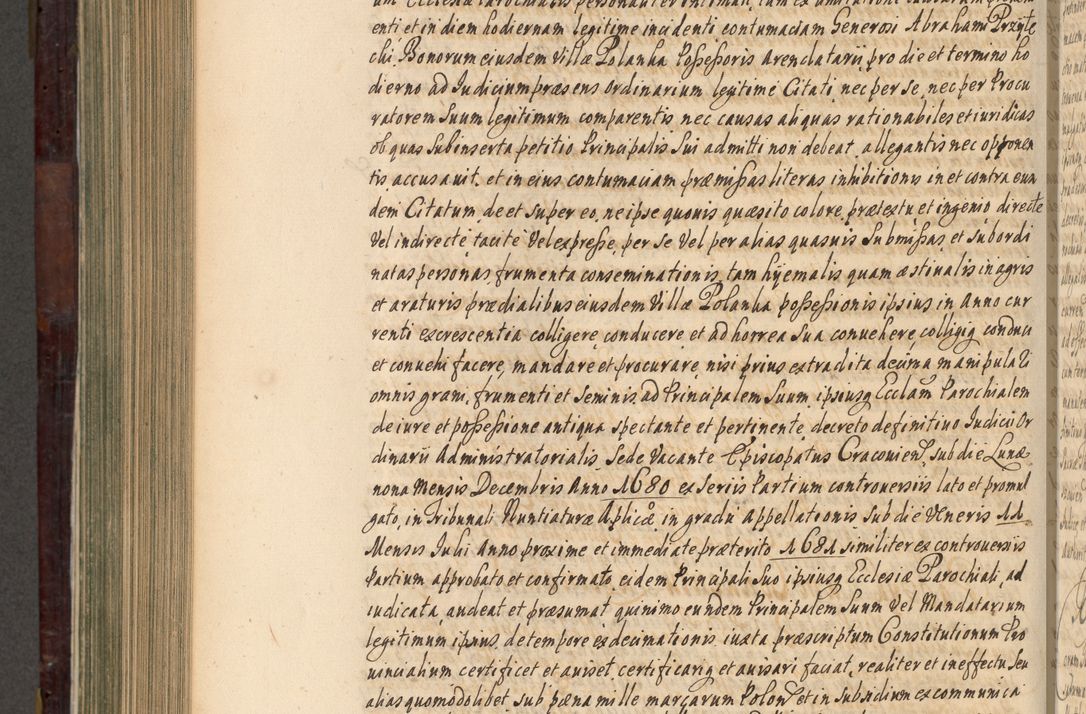 enti et in diem hodiernam legitime incidenti contumaciam Generosi Abrahami Przyłe
cki Bonorum eiusdem Villæ Polanka Possessoris Arendatarij, pro die et termino ho
dierno ad Iudicium præsens Ordinarium legitime Citati, nec per se, nec per Procu
ratorem Suum legitimum comparentis nec causas aliquas rationabiles et iuridicas
ob quas Subinserta petitio Principalis Sui admitti non debeat, allegantis nec opponen
tis, accusauit, et in eius contumaciam præmissas literas inhibitionis in et contra eun
dem Citatum, de et super eo, ne ipse quouis quæsito colore, prætextu et ingenio directe
Vel indirecte, tacite Vel expresse, per se Vel per alias quasuis Submissas, et subordi
natas personas, frumenta conseminationis, tam hyemalis quam æstiualis in agris
et araturis prædialibus eiusdem Villæ Polanka possessionis ipsius in Anno cur
renti excrescentia colligere, conducere et ad horrea Sua conuehere, colligiq conduci
et conuehi facere, mandare et procurare, nisi prius extradita decima manipulati
omnis grani, frumenti et Seminis, ad Principalem Suum, ipsiusq Ecclam Parochialem
de iure et possessione antiqua spectante et pertinente, decreto definitiuo Iudicii Or
dinarij Administratorialis, Sede Vacante Episcopatus Cracouien, sub die Lunæ
nona Mensis Decembris Anno 1680 ex Seriis Partium controuersiis lato et promul
gato, in Tribunali Nuntiaturæ Aplicæ, in gradu Appellationis sub die Veneris 11
Mensis Iulii Anno proxime et immediate præterito 1681 similiter ex controuersiis
Partium approbato et confirmato, eidem Principali Suo ipsiusq Ecclesiæ Parochiali, ad
iudicata, audeat et præsumat, quinimo eundem Principalem Suum Vel Mandatarium
legitimum ipsius, de tempore exdecimationis iuxta præscriptum Constitutionum Pro
uincialium certificet et auiset, certificariq et auisari faciat, realiter et in effectu Seu
alias quomodolibet, sub pæna mille marcarum Polon et in Subsidium excommunica